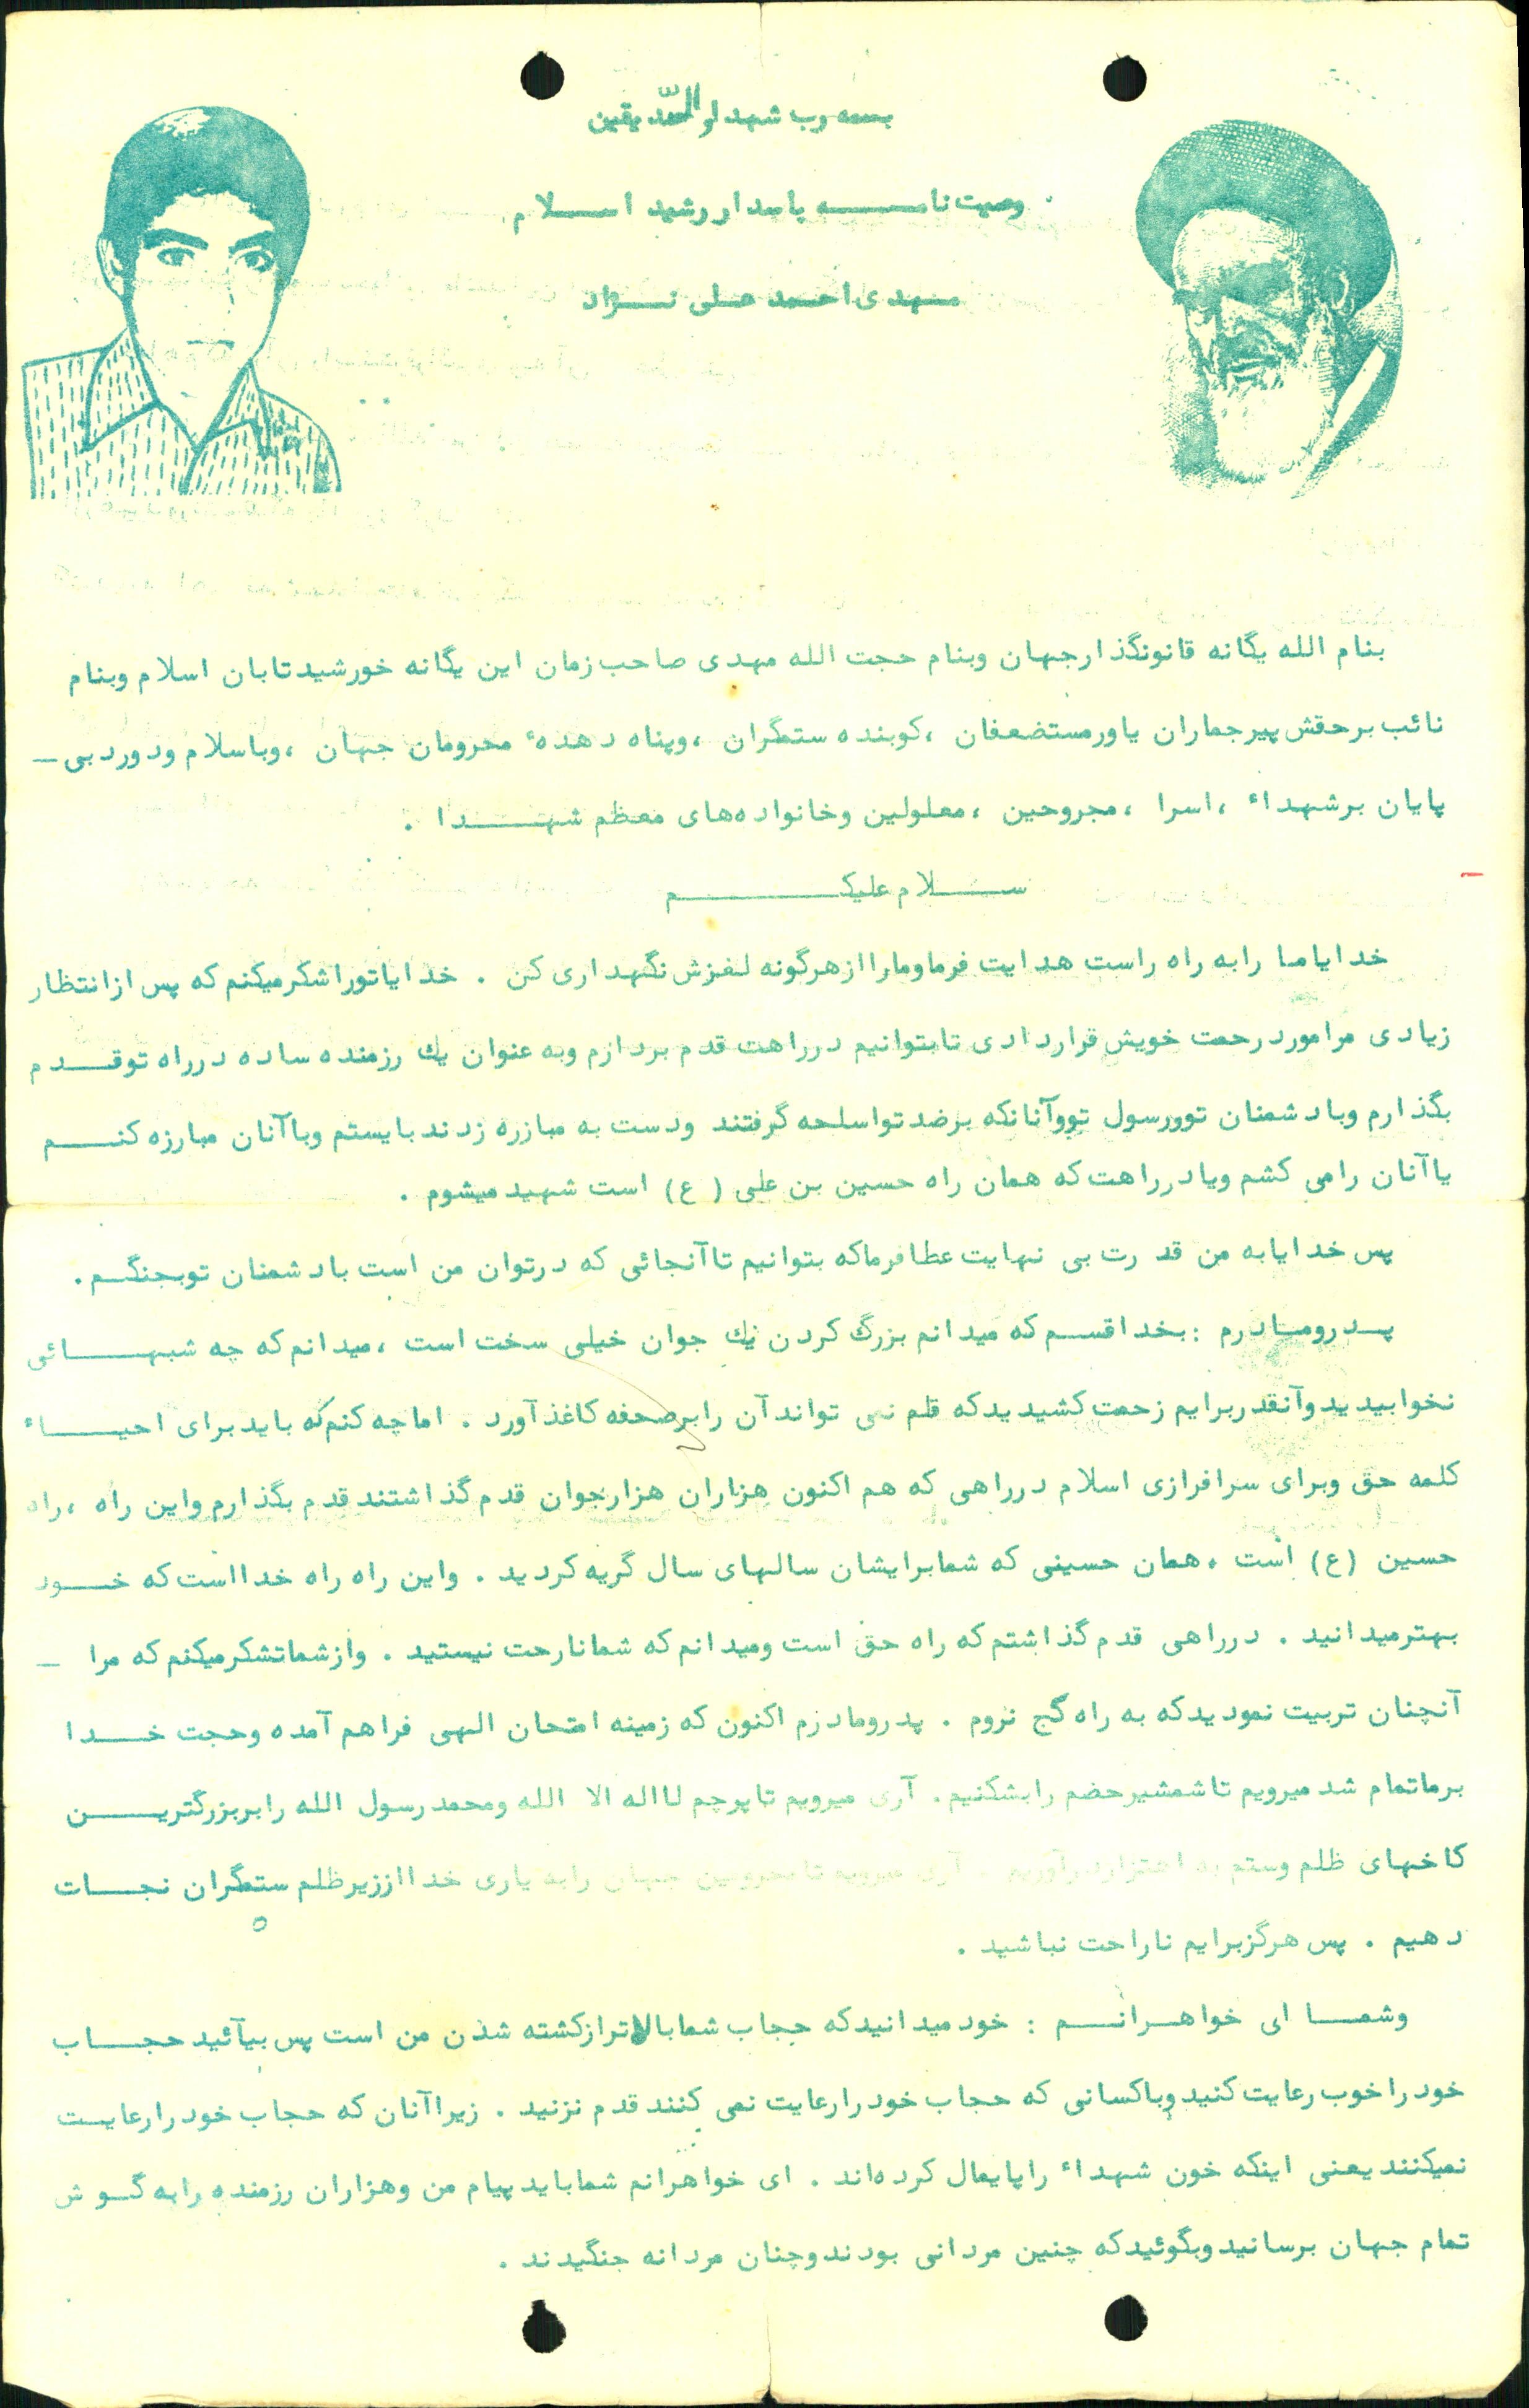 بسمه رب شهدا والصدیقین
وصیت نامه پاسدار رشید اسلام
مهدی احمد علی نژاد
بنام الله یگانه قانونگذار جهان وبنام حجت الله مهدی صاحب زمان این یگانه خورشید تابان اسلام وبنام
نائب برحقش پیر جماران یاور مستضعفان ،کوبنده ستمگران ،وپناه دهدهٔ محرومان جهان ،وباسلام ودورد بی –
پایان بر شهداء ،اسرا ،مجروحین ،معلولین وخانواده‌های معظم شهدا .
سلام علیکم
خدایا ما را به راه راست هدایت فرما ومارا از هرگونه لغزش نگهداری کن . خدایا تورا شکر میکنم که پس از انتظار
زیادی مرا مورد رحمت خویش قرار دادی تا بتوانیم در راهت قدم بردازم وبه عنوان یك رزمنده ساده در راه تو قدم
بگذارم وبا دشمنان تو ورسول تو وآنانکه بر ضد تو اسلحه گرفتند ودست به مبازره زدند بایستم وباآنان مبارزه کنم
یا آنان را می کشم ویا در راهت که همان راه حسین بن علی ( ع ) است شهید میشوم .
پس خدایا به من قدرت بی نهایت عطا فرما که بتوانیم تا آنجائی که در توان من است با دشمنان تو بجنگم .
پدر ومادرم : بخدا قسم که میدانم بزرگ کردن یك جوان خیلی سخت است ،میدانم که چه شبهائی
نخوابیدید وآنقدر برایم زحمت کشیدید که قلم نمی تواند آن را بر صحفه کاغذ آورد . اما چه کنم که باید برای احیاء
کلمه حق وبرای سرافرازی اسلام در راهی که هم اکنون هزاران هزار جوان قدم گذاشتند قدم بگذارم واین راه ،راه
حسین (ع) است ،همان حسینی که شما برایشان سالهای سال گریه کردید . واین راه راه خدا است که خود
بهتر میدانید . در راهی قدم گذاشتم که راه حق است ومیدانم که شما نارحت نیستید . واز شما تشکر میکنم که مرا –
آنچنان تربیت نمودید که به راه کج نروم . پدر ومادرم اکنون که زمینه امتحان الهی فراهم آمده وحجت خدا
بر ما تمام شد میرویم تا شمشیر خضم را بشکنیم . آری میرویم تا پرچم لااله الا الله ومحمد رسول الله را بر بزرگترین
کاخهای ظلم وستم به اهتزار درآوریم . آری میرویم تا محرومین جهان را به یاری خدا از زیر ظلم ستمگران نجات
دهیم . پس هرگز برایم ناراحت نباشید .
وشما ای خواهرانم : خود میدانید که حجاب شما بالاتر از کشته شدن من است پس بیآئید حجاب
خود را خوب رعایت کنید وباکسانی که حجاب خود را رعایت نمی کنند قدم نزنید . زیرا آنان که حجاب خود را رعایت
نمیکنند یعنی اینکه خون شهداء را پایمال کرده‌اند . ای خواهرانم شما باید پیام من وهزاران رزمنده را به گوش
تمام جهان برسانید وبگوئید که چنین مردانی بودند وچنان مردانه جنگیدند .